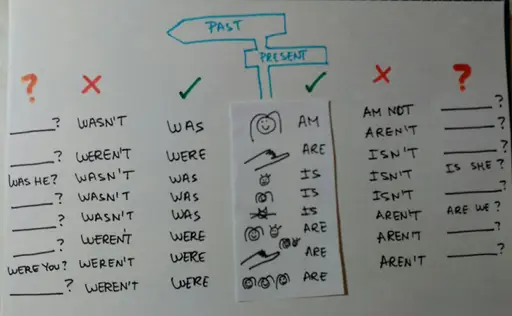 PAST
PRESENT
? X ✓ ✓ X ?
____? WASN'T WAS AM AM NOT ____?
____? WEREN'T WERE ARE AREN'T ____?
WAS HE? WASN'T WAS IS ISN'T IS SHE?
____? WASN'T WAS IS ISN'T ____?
____? WASN'T WAS IS ISN'T ARE WE?
____? WEREN'T WERE ARE AREN'T ____?
WERE YOU? WEREN'T WERE ARE AREN'T ____?
____? WEREN'T WERE ARE AREN'T ____?